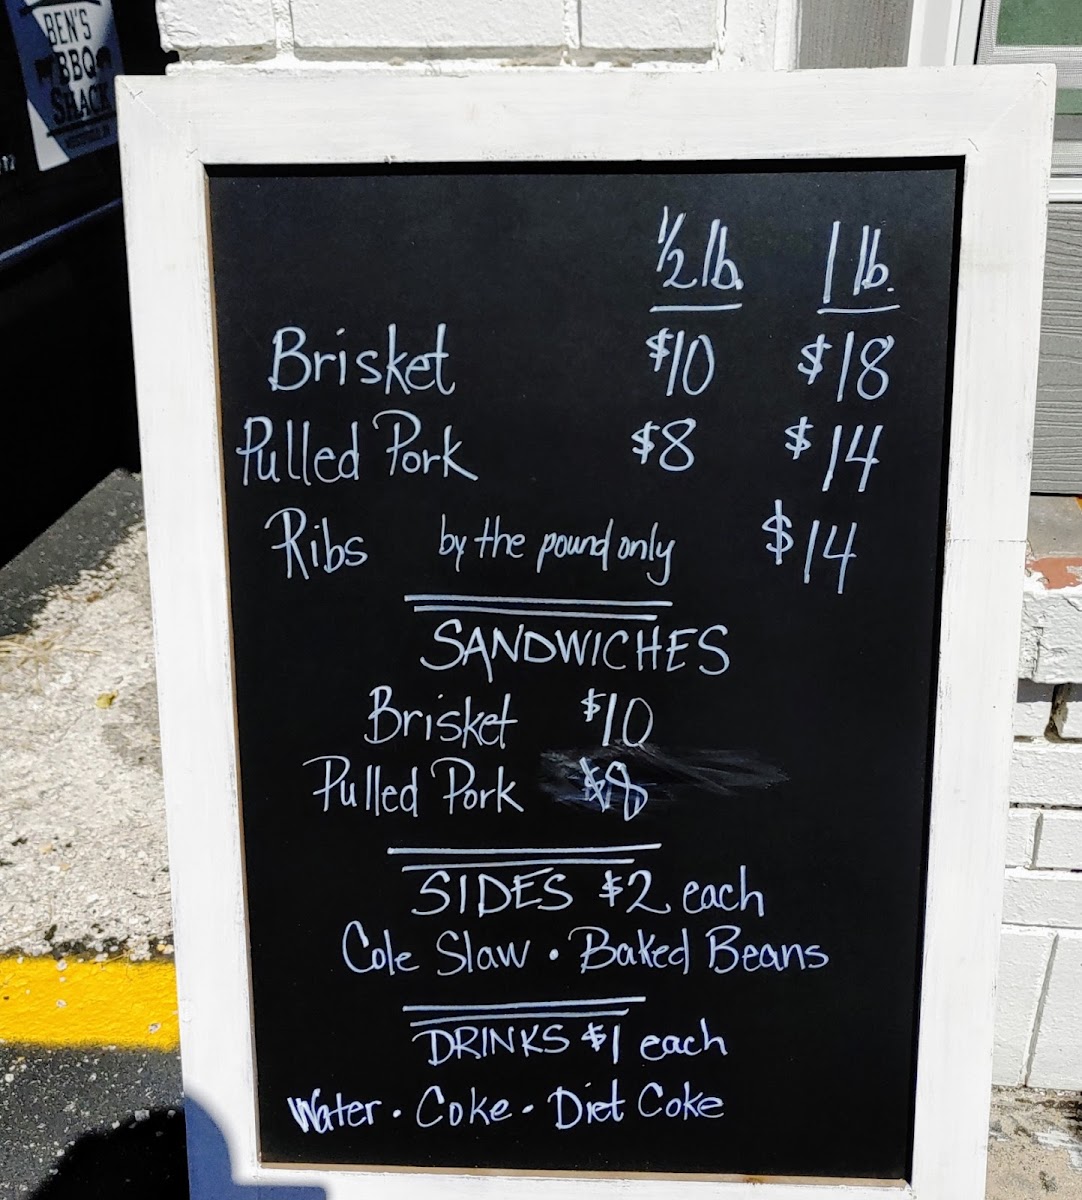 BEN'S
BBQ
SHACK
½ lb. 1 lb.
Brisket $10 $18
Pulled Pork $8 $14
Ribs by the pound only $14
SANDWICHES
Brisket $10
Pulled Pork $8
SIDES $2 each
Cole Slaw • Baked Beans
DRINKS $1 each
Water • Coke • Diet Coke